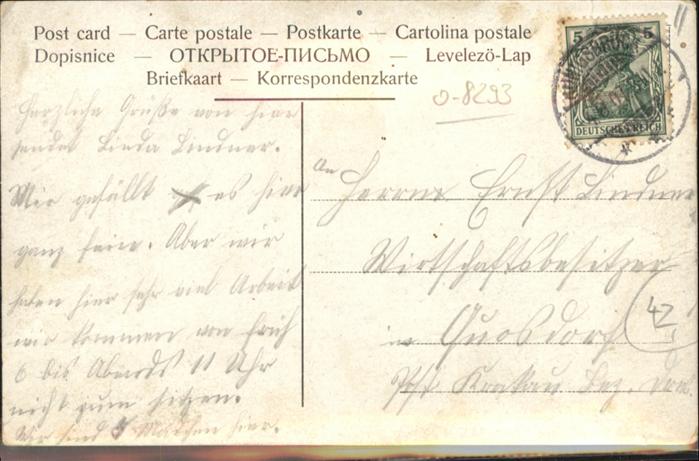 Post card — Carte postale — Postkarte — Cartolina postale
Dopisnice — ОТКРЫТОЕ-ПИСЬМО — Levelezö-Lap
Briefkaart — Korrespondenzkarte
5 5
DEUTSCHES REICH
0-8293
Herzliche Grüße von hier
sendet Linda Lindner.
Mir gefällt es hier
ganz fein. Aber wir
haben hier sehr viel Arbeit
wir kommen von früh
6 bis Abends 11 Uhr
nicht zum sitzen.
Wir sind Mädchen hier.
An
Herrn Ernst Lindner
Wirtschaftsbesitzer
in Quosdorf
42
Post Krakau Bez.